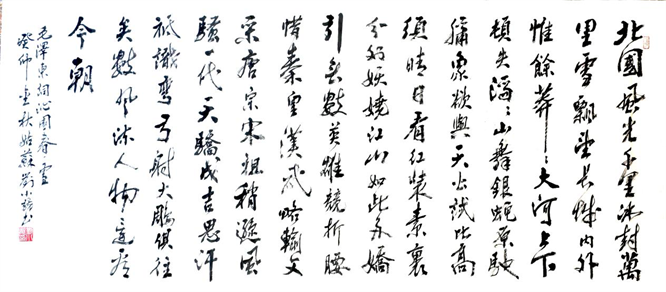 北國風光千里冰封萬
里雪飄望長城內外
惟餘莽〻大河上下
頓失滔〻山舞銀蛇原馳
臘象欲與天公試比高
須晴日看紅裝素裹
分外妖嬈江山如此多嬌
引無數英雄競折腰
惜秦皇漢武略輸文
采唐宗宋祖稍遜風
騷一代天驕成吉思汗
祇識彎弓射大雕俱往
矣數風流人物還看
今朝
毛澤東詞沁園春雪
癸卯金秋姑蘇劉小書